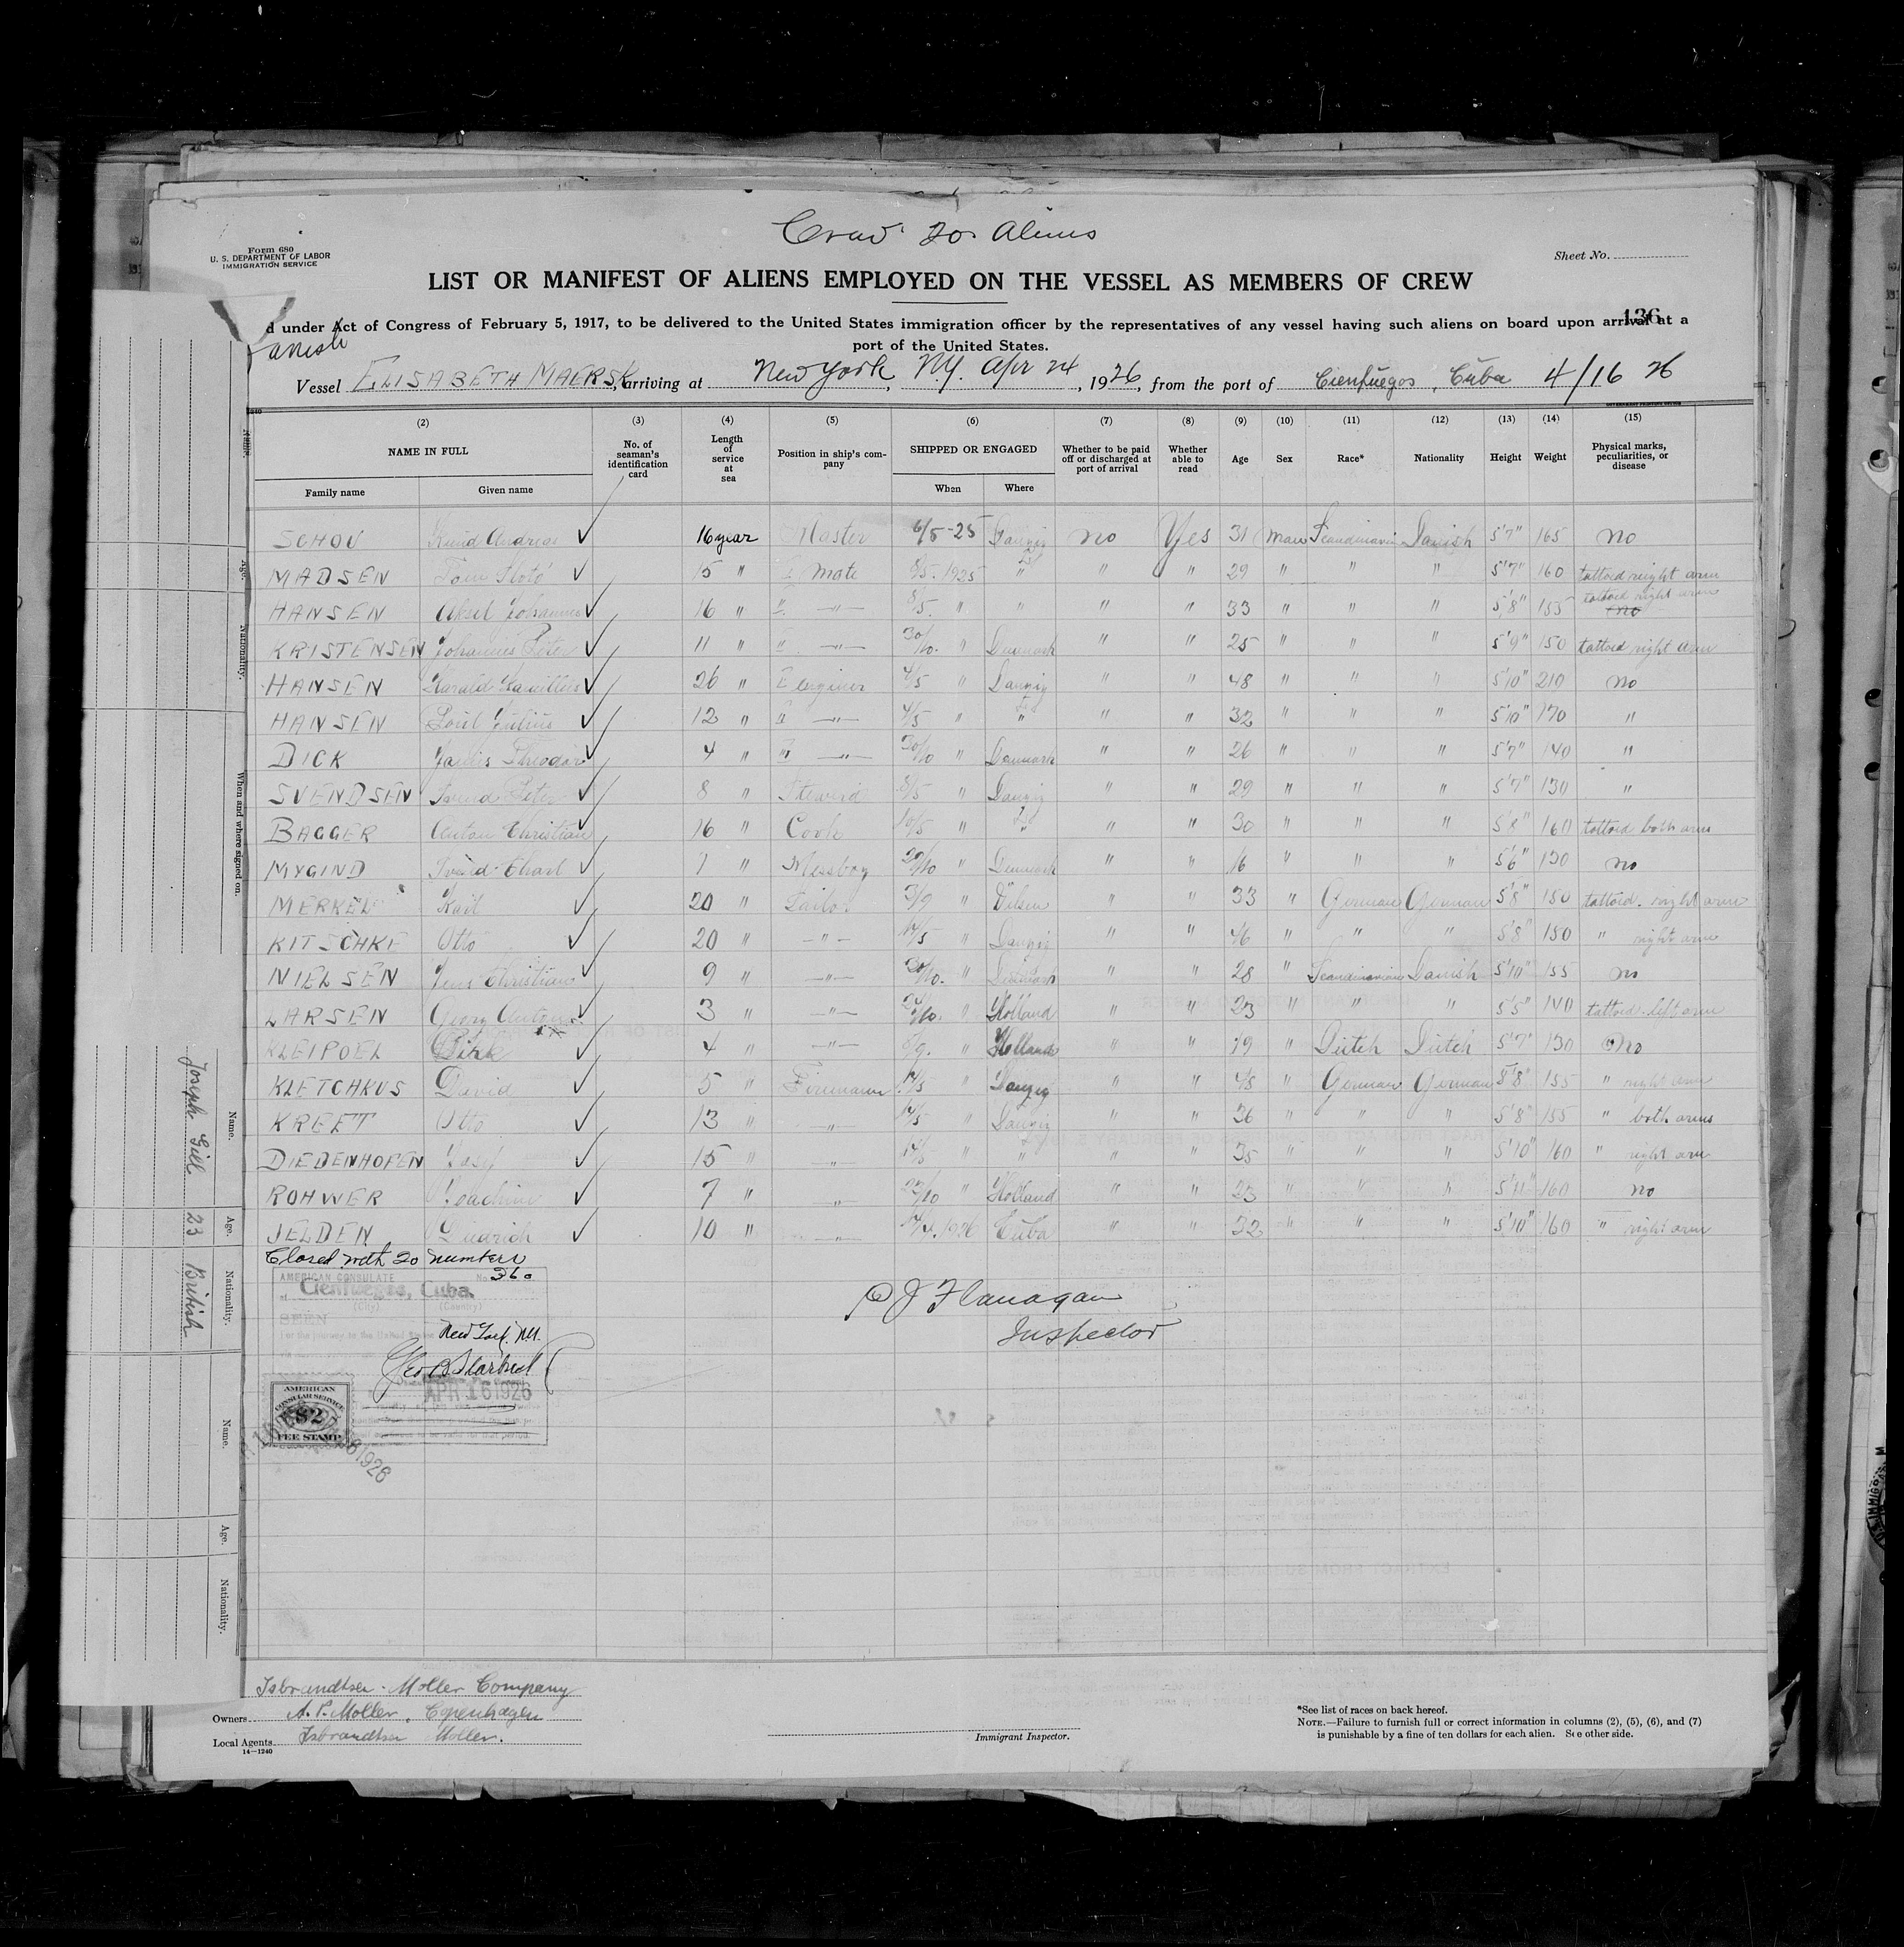 Crew 20 Aliens
Form 680
U. S. DEPARTMENT OF LABOR
IMMIGRATION SERVICE
Sheet No.
LIST OR MANIFEST OF ALIENS EMPLOYED ON THE VESSEL AS MEMBERS OF CREW
136
d under Act of Congress of February 5, 1917, to be delivered to the United States immigration officer by the representatives of any vessel having such aliens on board upon arrival at a
port of the United States.
Vessel ELISABETH MAERSK, arriving at New York, N.Y. Apr 24, 1926, from the port of Cienfuegos, Cuba 4/16 26
(2) (3) (4) (5) (6) (7) (8) (9) (10) (11) (12) (13) (14) (15)
NAME IN FULL No. of seaman's identification card Length of service at sea Position in ship's company SHIPPED OR ENGAGED Whether to be paid off or discharged at port of arrival Whether able to read Age Sex Race* Nationality Height Weight Physical marks, peculiarities, or disease
Family name Given name When Where
SCHOU Knud Andreas 16 year Master 6/5-25 Danzig no Yes 31 man Scandinavian Danish 5'7" 165 no
MADSEN 15 " I Mate 8/5. 1925 " " " 29 " " " 5'7" 160 tattoed right arm
HANSEN Aksel Johannes 16 " II —"— 8/5. " " " " 33 " " " 5'8" 155 tattoed right arm
KRISTENSEN Johannes Peter 11 " —"— 30/10. " Denmark " " 25 " " " 5'9" 150 tattoed right arm
HANSEN Harald 26 " I engineer 4/5 " Danzig " " 48 " " " 5'10" 210 no
HANSEN Poul Julius 12 " II —"— 4/5 " " " " 32 " " " 5'10" 170 "
DICK Theodor 4 " III —"— 30/10 " Danmark " " 26 " " " 5'7" 140 "
SVENDSEN Svend Peter 8 " Steward 8/5 " Danzig " " 29 " " " 5'7" 130 "
BAGGER Anton Christian 16 " Cook 10/5 " " " " 30 " " " 5'8" 160 tattoed both arms
MYGIND Charl 1 " Messboy 29/10 " Denmark " " 16 " " " 5'6" 130 no
MERKEL Karl 20 " Sailor 3/9 " " " 33 " German German 5'8" 150 tattoed right arm
KITSCHKE Otto 20 " —"— 14/5 " Danzig " " 46 " " " 5'8" 150 " right arm
NIELSEN Jens Christian 9 " —"— 30/10. " Denmark " " 28 " Scandinavian Danish 5'10" 155 no
LARSEN Georg Antons 3 " —"— 24/10. " Holland " " 23 " " " 5'5" 140 tattoed left arm
KLEIPOEL Dirk 4 " —"— 8/9. " Holland " " 19 " Dutch Dutch 5'7" 130 no
KLETCHKUS David 5 " Firemann 14/5 " Danzig " " 48 " German German 5'8" 155 " right arm
KREFT Otto 13 " —"— 14/5 " Danzig " " 36 " " " 5'8" 155 " both arms
DIEDENHOFEN Josef 15 " " 14/5 " " " " 35 " " " 5'10" 160 " right arm
ROHWER Joachim 7 " " 22/10 " Holland " " 23 " " " 5'11" 160 no
JELDEN Diedrich 10 " " 14/4. 1926 Cuba " " 32 " " " 5'10" 160 " right arm
Closed with 20 numbers
AMERICAN CONSULATE No. 360
Cienfuegos, Cuba.
(City) (Country)
SEEN
New York, NY.
APR 16 1926
AMERICAN
CONSULAR SERVICE
$2
FEE STAMP
P J Flanagan
Inspector
Name. Joseph Gill
Age. 23
Nationality. British
Name.
Age.
Nationality.
Age.
Nationality.
When and where signed on.
Isbrandtsen-Moller Company
Owners A. P. Moller, Copenhagen
Local Agents Isbrandtsen Moller.
14—1240
Immigrant Inspector.
*See list of races on back hereof.
NOTE.—Failure to furnish full or correct information in columns (2), (5), (6), and (7)
is punishable by a fine of ten dollars for each alien. See other side.